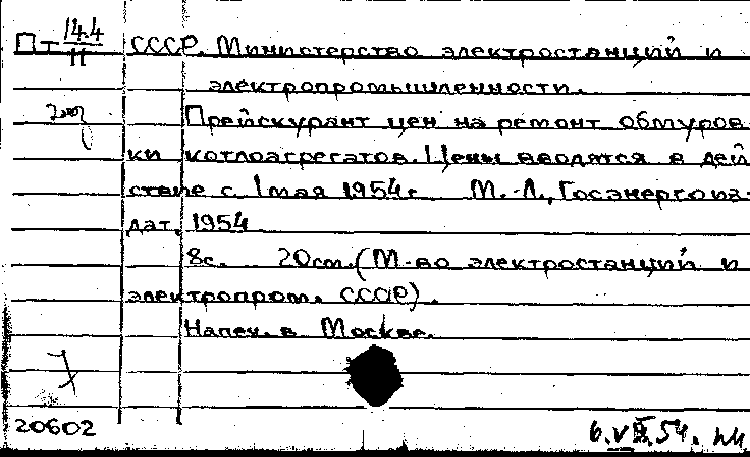 Пт 14.4/11 СССР. Министерство электростанций и
электропромышленности.
Прейскурант цен на ремонт обмуров-
ки котлоагрегатов. Цены вводятся в дей
ствие с 1 мая 1954 г. М.-Л., Госэнергоиз-
дат, 1954
8с. 20см. (М-во электростанций и
электропром. СССР).
Напеч. в Москве.
20602